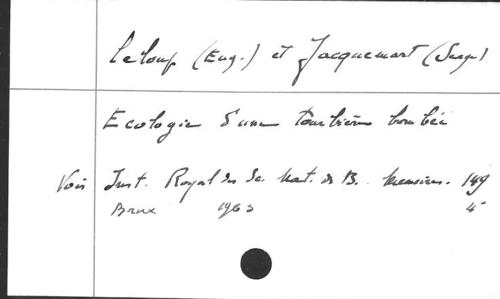 Leloup (Eug.) et Jacquemart (Serge)
Ecologie d'une tourbière bombée
Voir Inst. Royal des Sc. Nat. de B. Memoires. 149
Brux 1963 4°